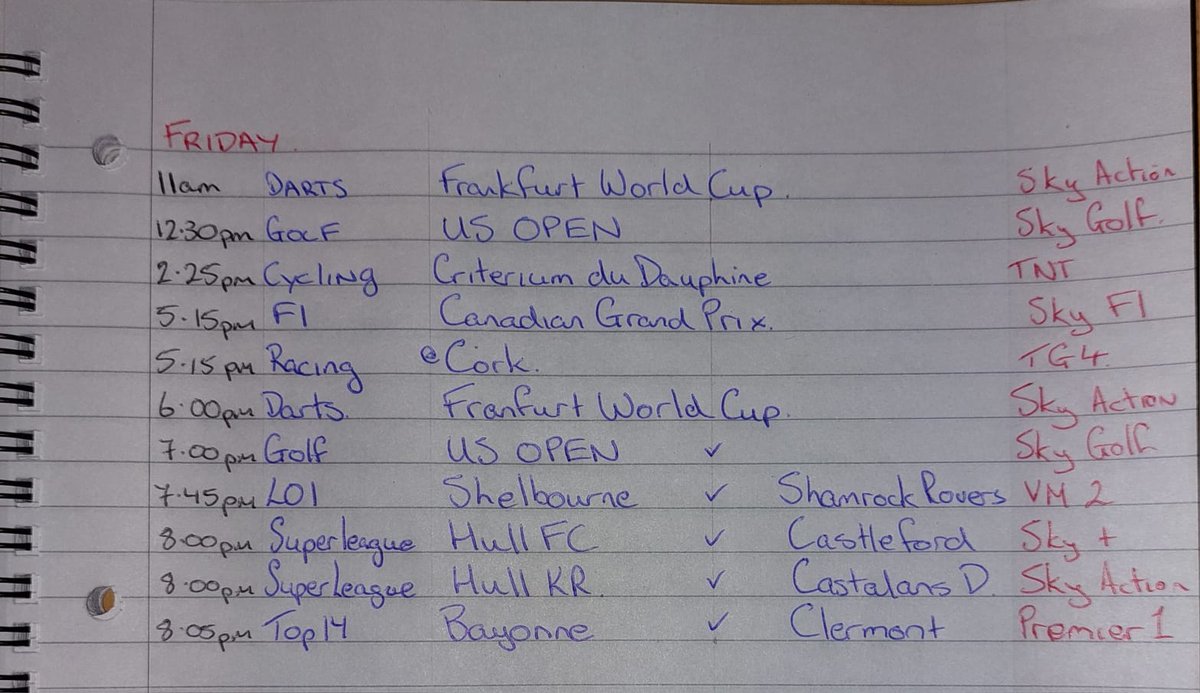 FRIDAY.
11am DARTS Frankfurt World Cup. Sky Action
12.30pm GOLF US OPEN Sky Golf.
2.25pm Cycling Criterium du Dauphine TNT
5.15pm F1 Canadian Grand Prix. Sky F1
5.15pm Racing @ Cork. TG4.
6.00pm Darts. Franfurt World Cup. Sky Action
7.00pm Golf US OPEN v Sky Golf
7.45pm LOI Shelbourne v Shamrock Rovers VM 2
8.00pm Superleague Hull FC v Castleford Sky +
8.00pm Superleague Hull KR. v Castalans D. Sky Action
8.05pm Top14 Bayonne v Clermont Premier 1